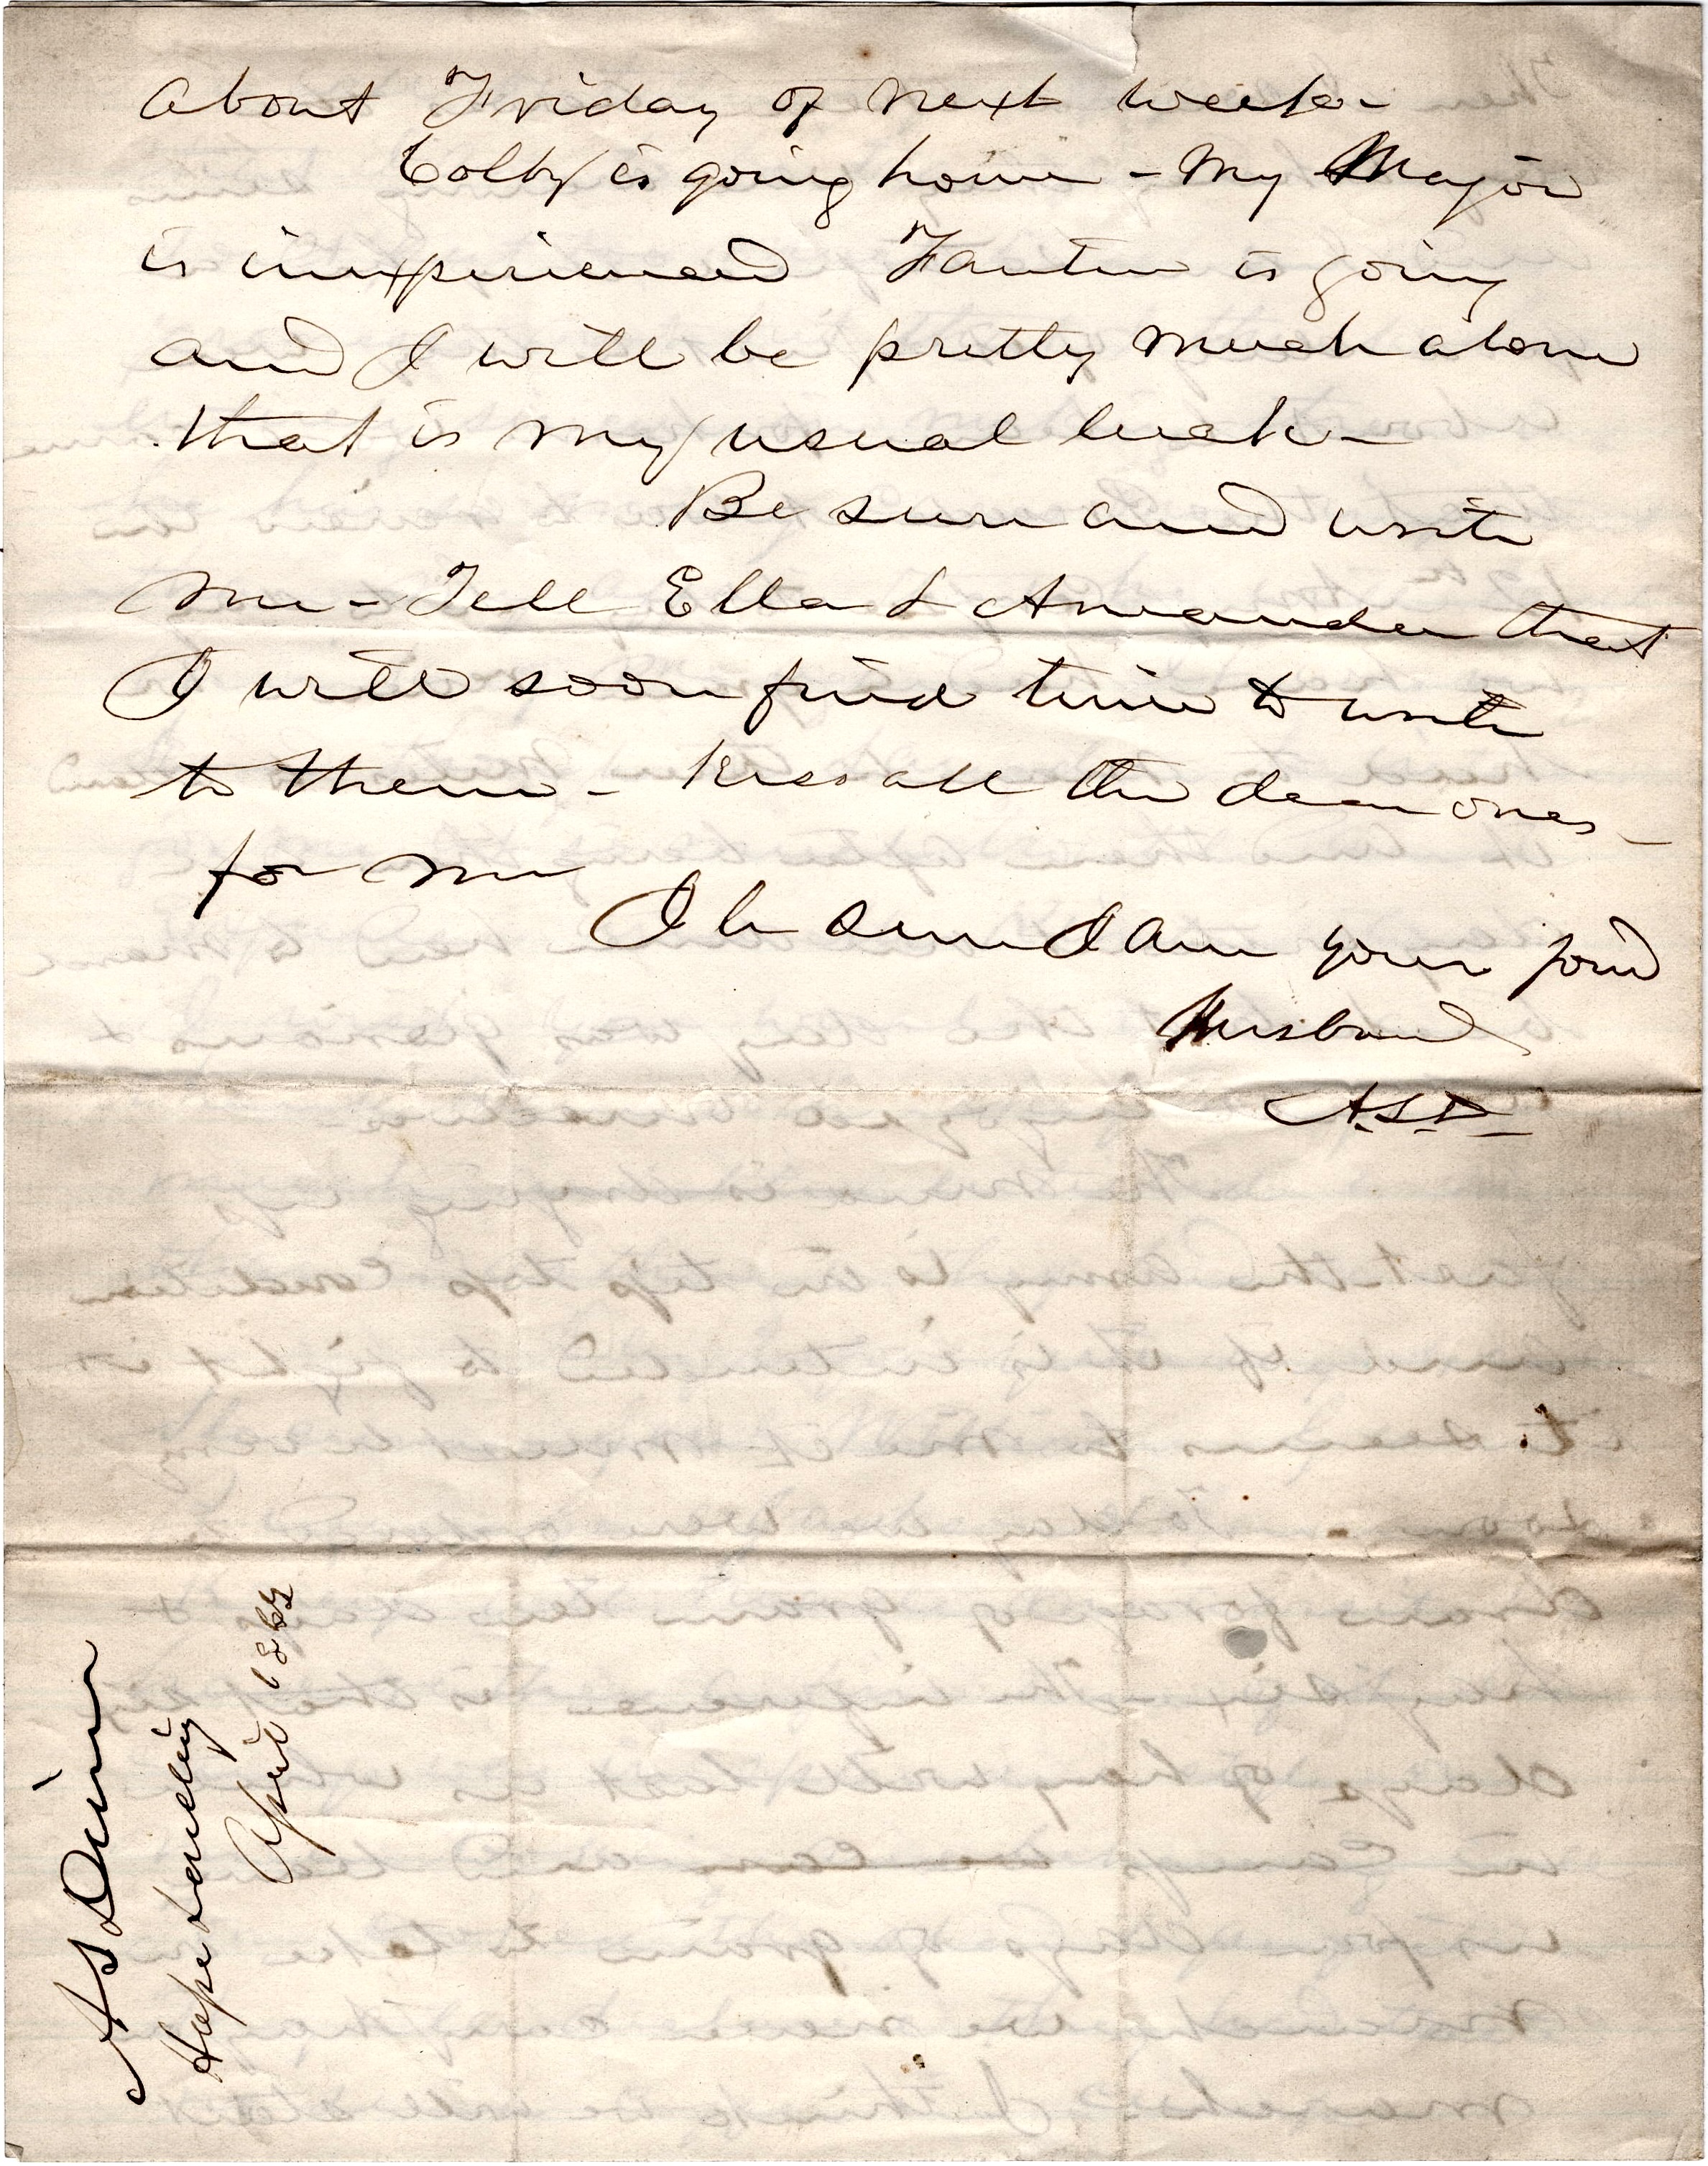 about Friday of next week-
Colby is going home - My Major
is inexperienced Fautin is going
and I will be pretty much alone
that is my usual luck-
Be sure and write
me - Tell Ella & Amanda that
I will soon find time to write
to them - Kiss all the dear ones -
for me
I am your fond
Husband
A.S.D.
A S Diven
Hope Landing
April 1863